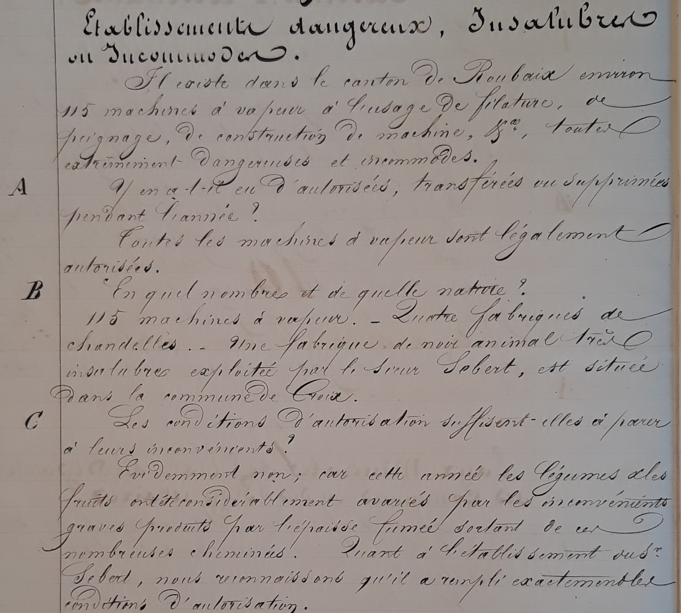 Etablissements dangereux, Insalubres
ou Incommodes.
Il existe dans le canton de Roubaix environ
115 machines à vapeur à l'usage de filature, de
peignage, de construction de machine, &a, toutes
extrêmement dangereuses et incommodes.
A Y en a-t-il eu d'autorisées, transférées ou supprimées
pendant l'année ?
Toutes les machines à vapeur sont légalement
autorisées.
B En quel nombre et de quelle nature ?
115 machines à vapeur. - Quatre fabriques de
chandelles. - Une fabrique de noir animal très
insalubre exploitée par le sieur Sebert, est située
dans la commune de Croix.
C Les conditions d'autorisation suffisent-elles à parer
à leurs inconvénients ?
Evidemment non; car cette année les légumes & les
fruits ont été considérablement avariés par les inconvénients
graves produits par l'épaisse fumée sortant de ces
nombreuses cheminés. Quant à l'établissement du Sr.
Sebert, nous reconnaissons qu'il a rempli exactement les
conditions d'autorisation.